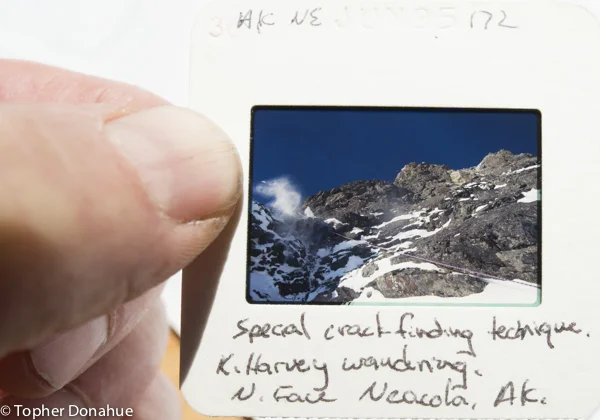 AK NE JUN 95 172
Special crack finding technique.
K. Harvey wandering.
N. Face Neacola, AK.
© Topher Donahue